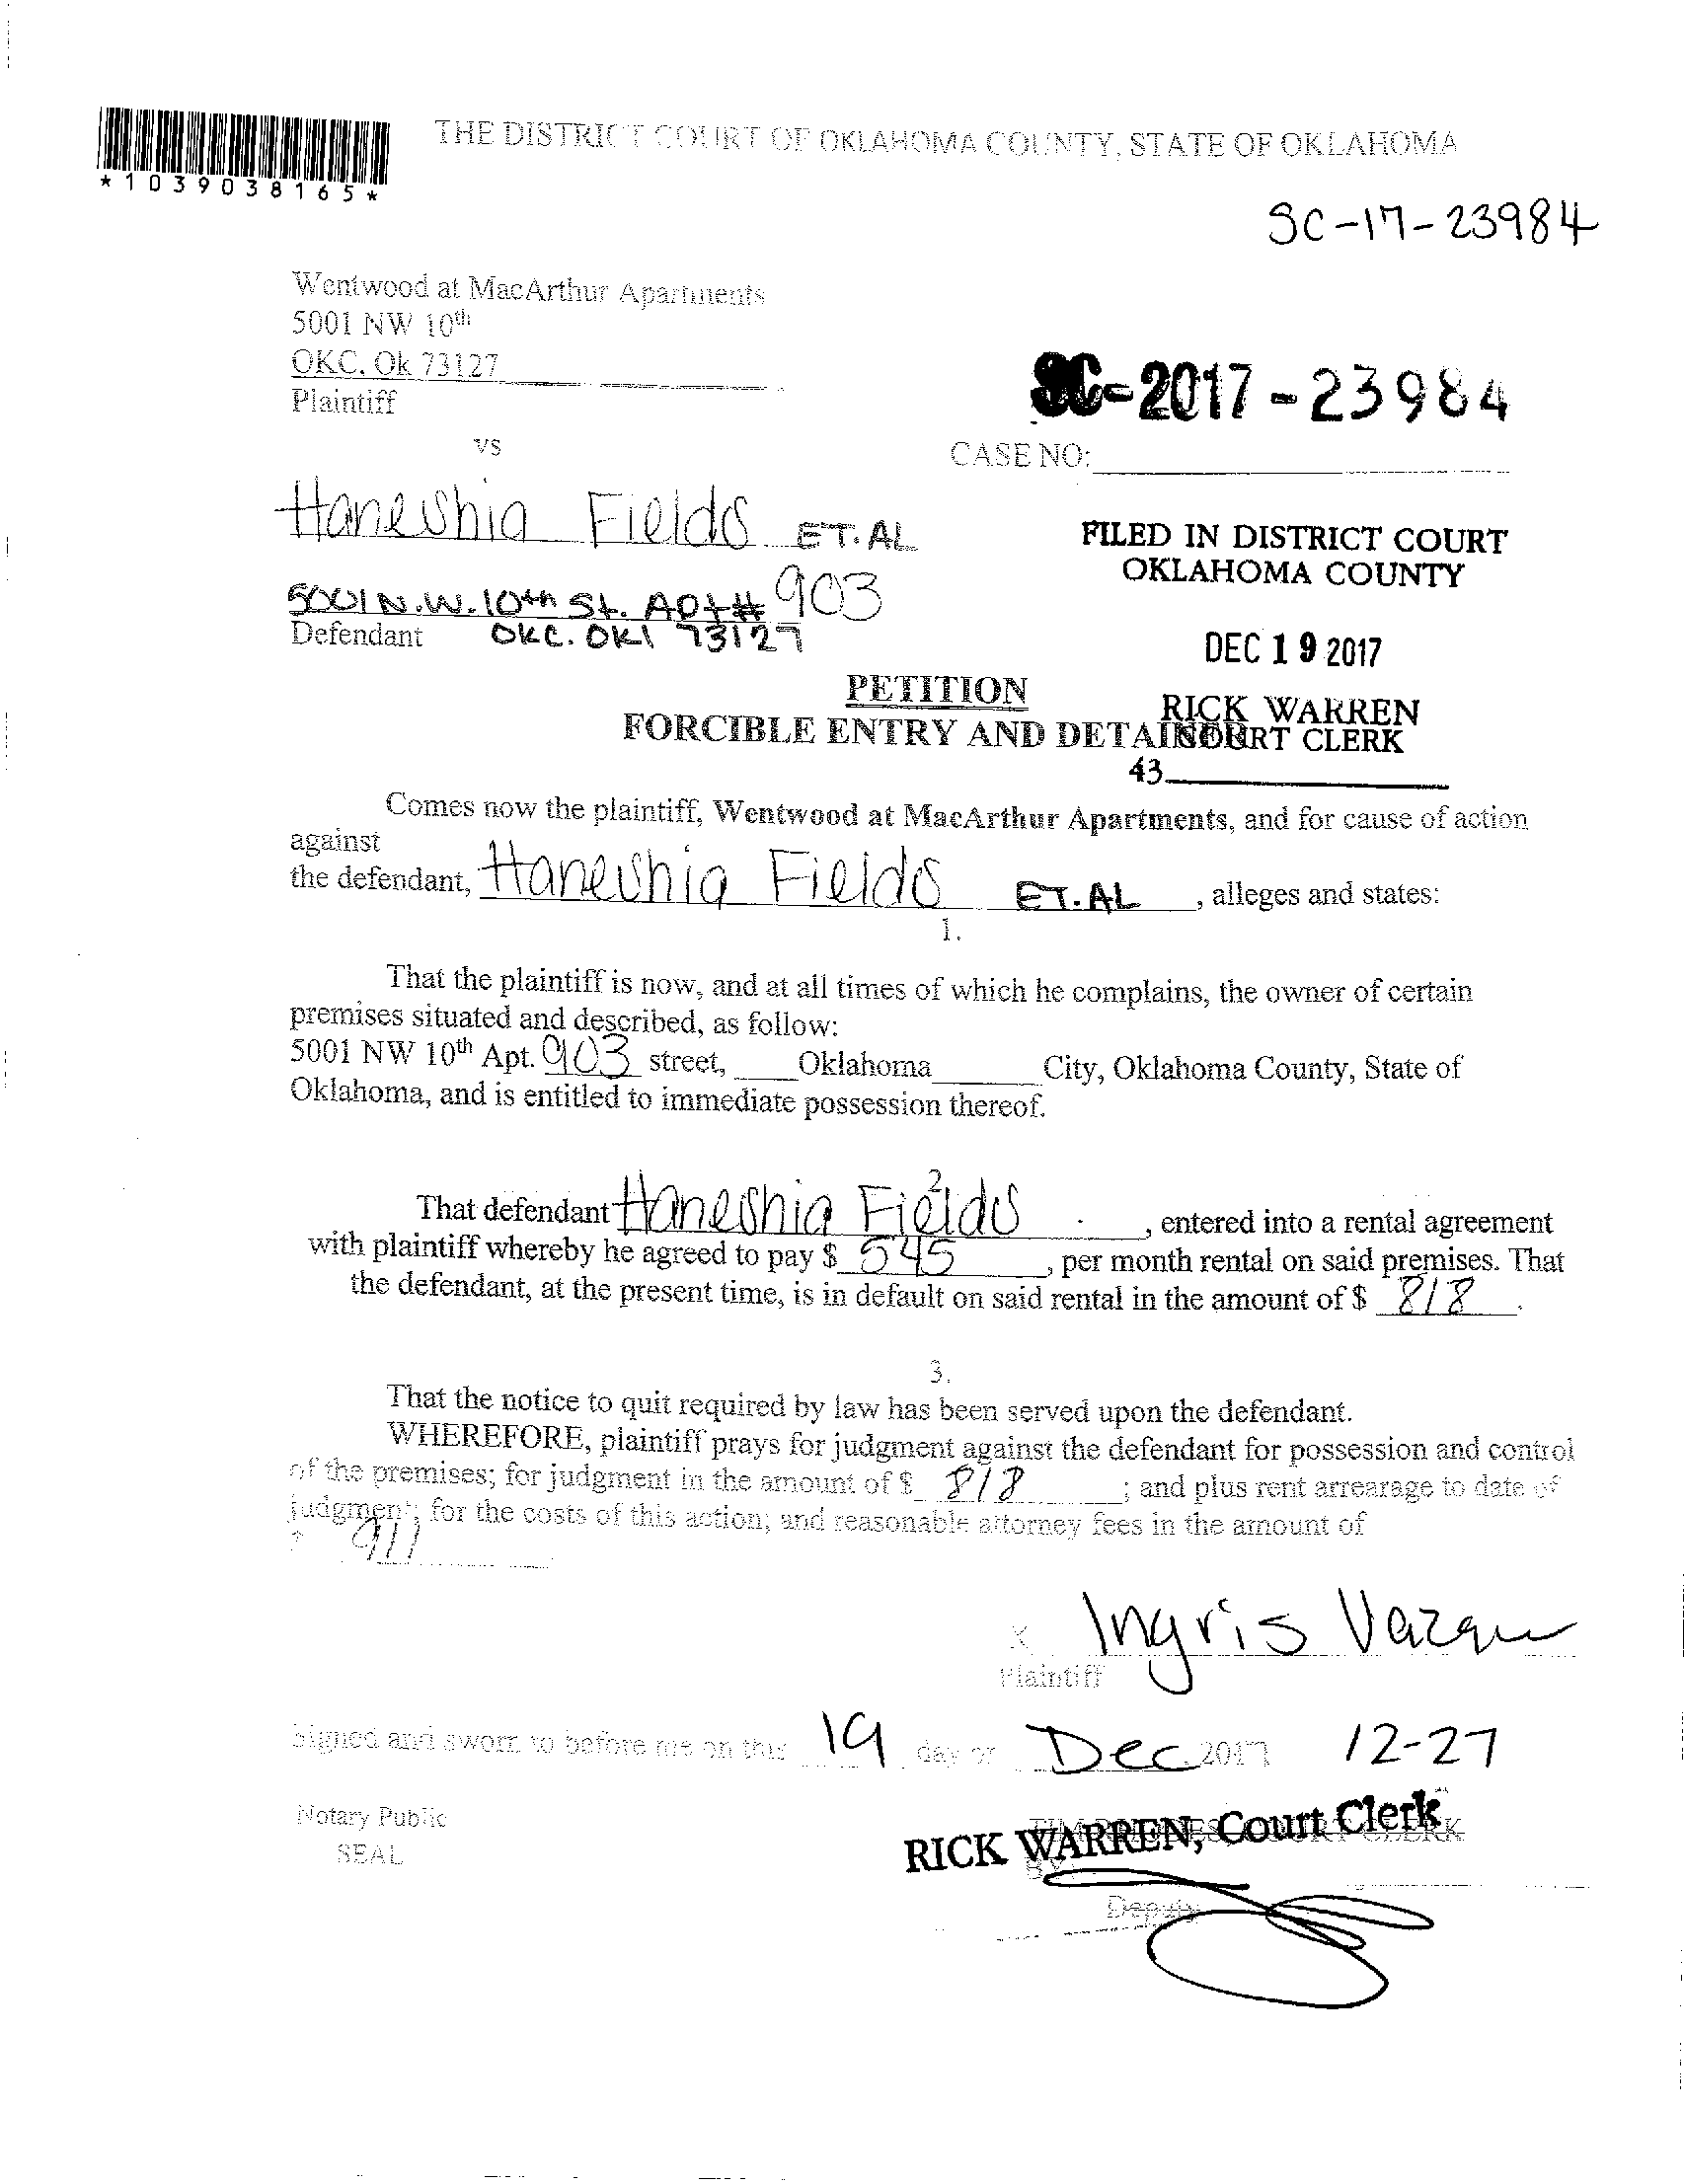 *1039038165*
THE DISTRICT COURT OF OKLAHOMA COUNTY, STATE OF OKLAHOMA
SC-17-23984
Wentwood at MacArthur Apartments
5001 NW 10th
OKC. Ok 73127
Plaintiff
SC-2017-23984
vs
CASE NO:
Haneshia Fields ET.AL
FILED IN DISTRICT COURT
OKLAHOMA COUNTY
5001 N.W. 10th St. Apt# 903
Defendant OKC. OKl 73127
DEC 19 2017
PETITION
RICK WARREN
FORCIBLE ENTRY AND DETAINER
COURT CLERK
43
Comes now the plaintiff, Wentwood at MacArthur Apartments, and for cause of action
against
the defendant, Haneshia Fields ET.AL , alleges and states:
1.
That the plaintiff is now, and at all times of which he complains, the owner of certain
premises situated and described, as follow:
5001 NW 10th Apt. 903 street, Oklahoma City, Oklahoma County, State of
Oklahoma, and is entitled to immediate possession thereof.
2.
That defendant Haneshia Fields , entered into a rental agreement
with plaintiff whereby he agreed to pay $ 545 , per month rental on said premises. That
the defendant, at the present time, is in default on said rental in the amount of $ 818 .
3.
That the notice to quit required by law has been served upon the defendant.
WHEREFORE, plaintiff prays for judgment against the defendant for possession and control
of the premises; for judgment in the amount of $ 818 ; and plus rent arrearage to date of
judgment; for the costs of this action; and reasonable attorney fees in the amount of
911
x Ingris Vazqu
Plaintiff
Signed and sworn to before me on this 19 day of Dec 2017 12-27
Notary Public
SEAL
RICK WARREN, Court Clerk
BY
Deputy